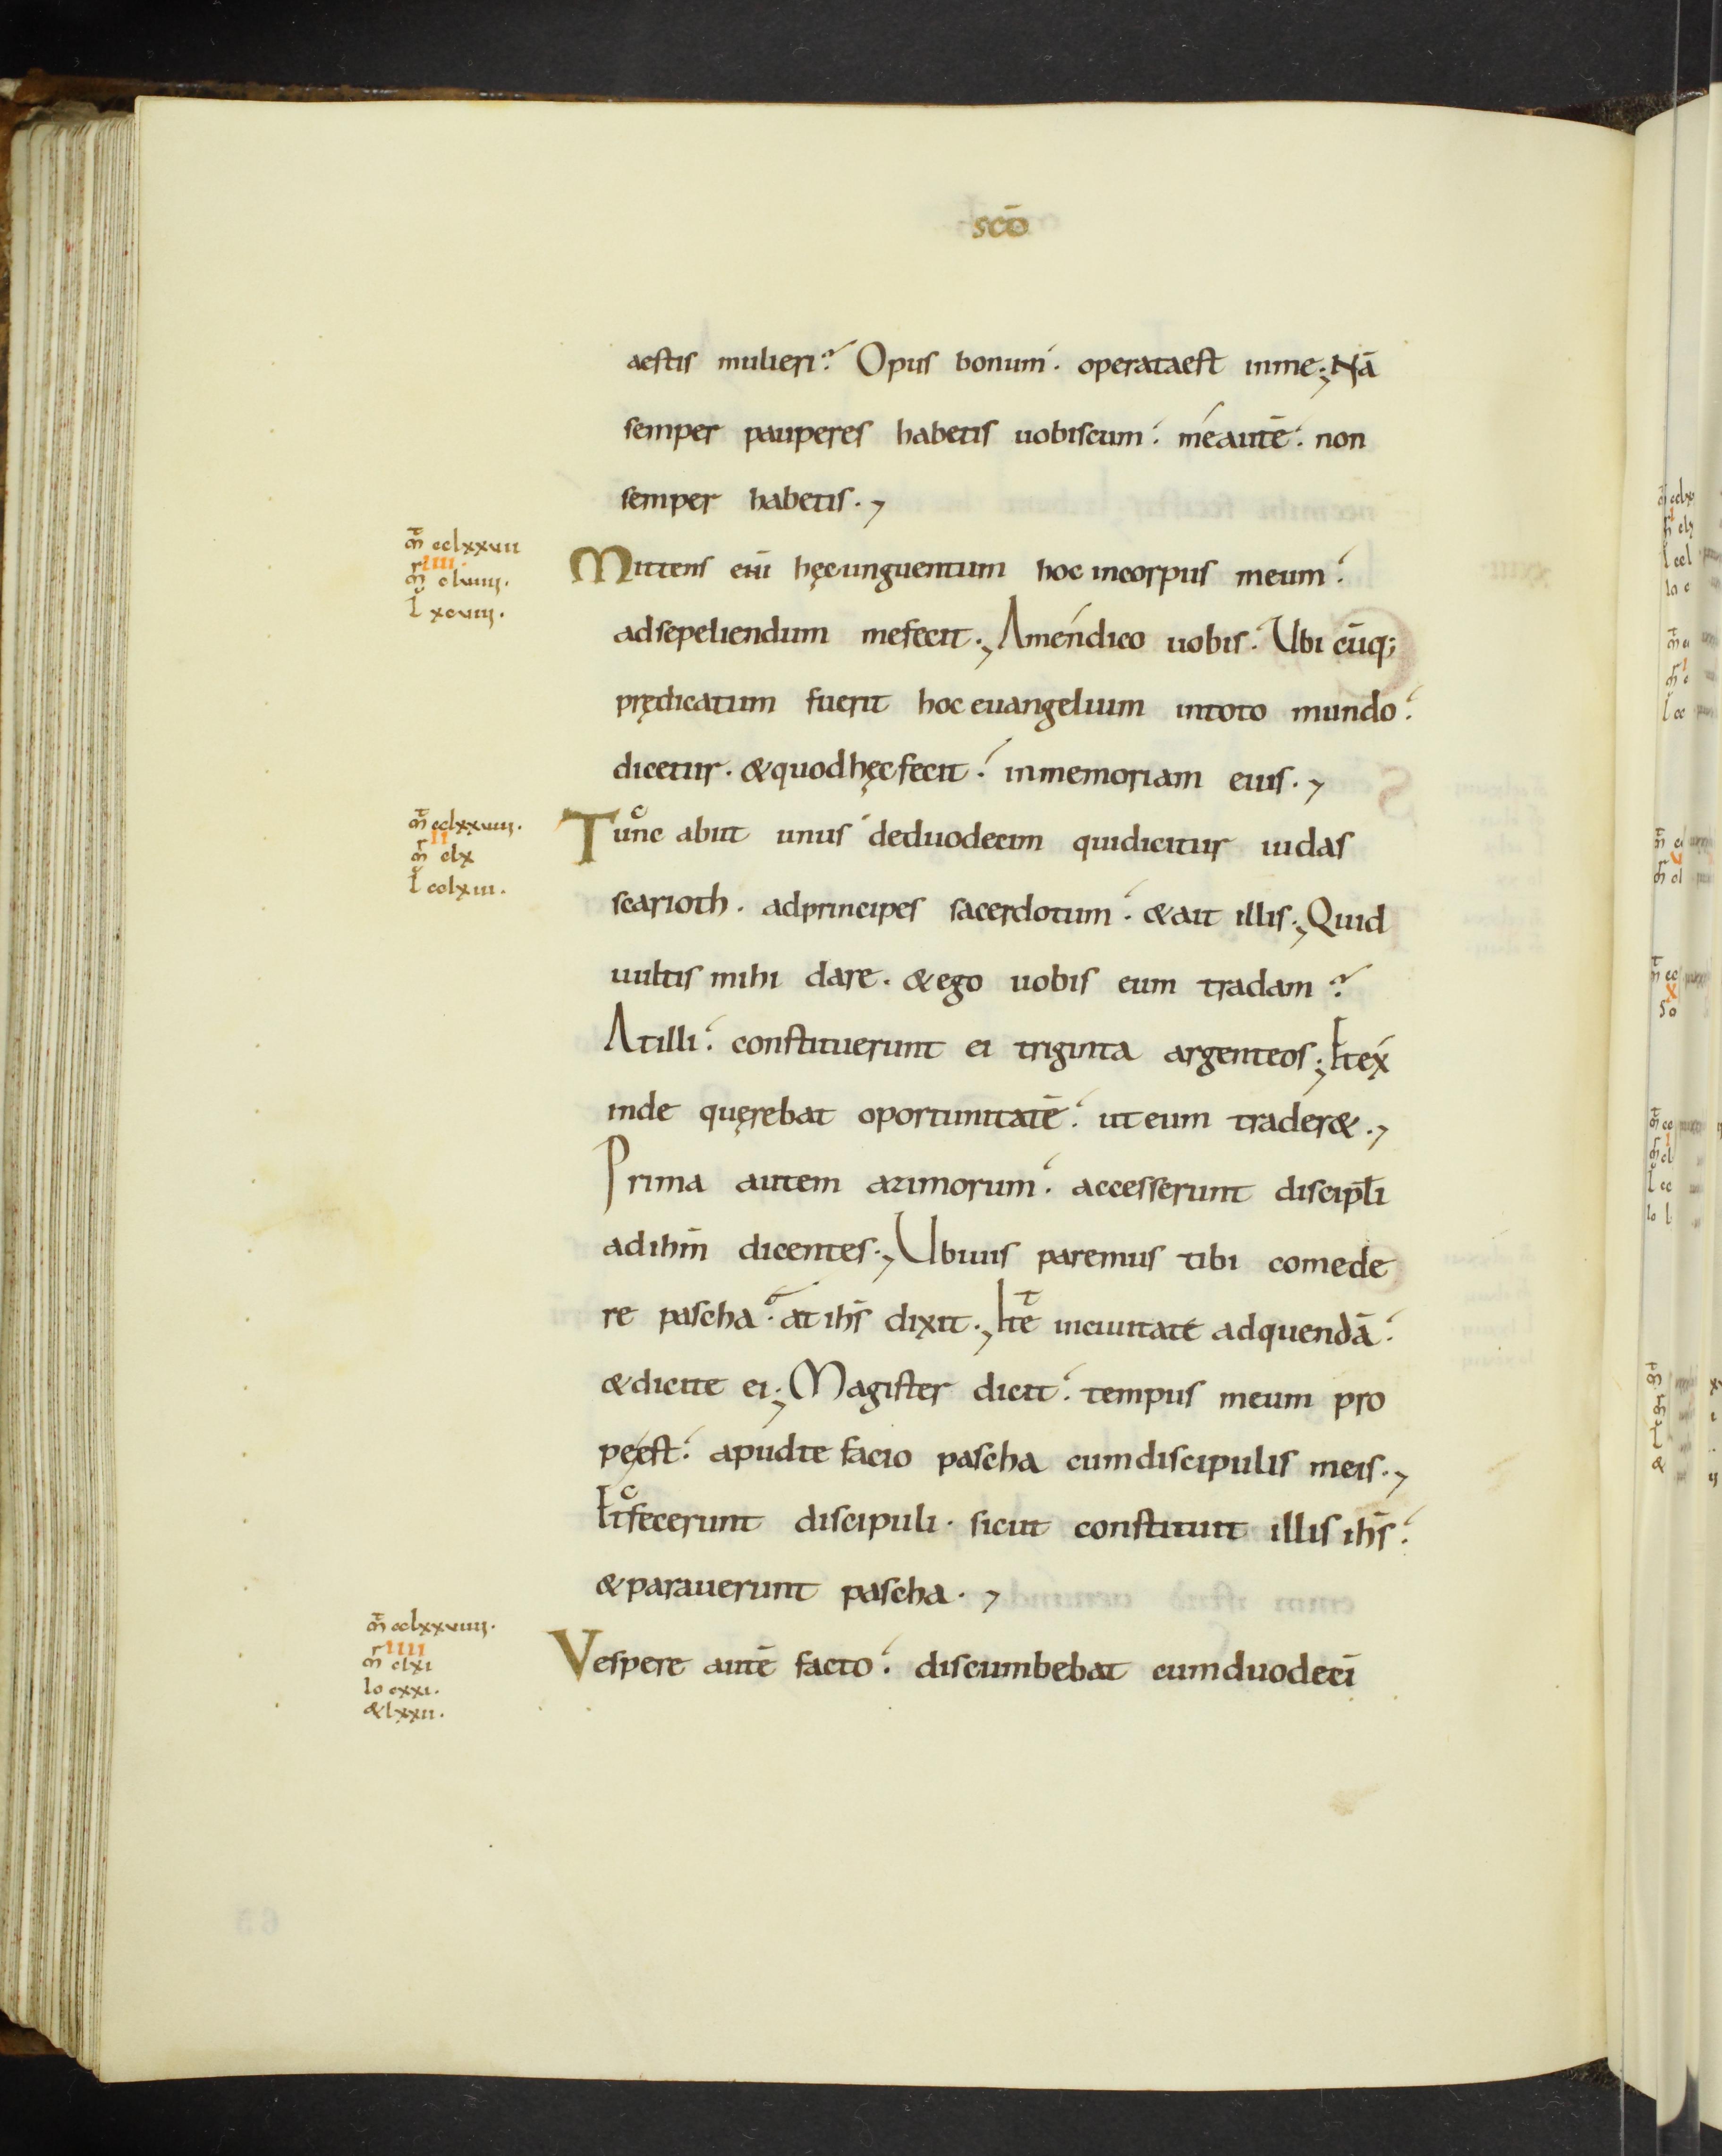 scō
aestis mulieri? Opus bonum. operataest inme; Nā
semper pauperes habetis uobiscum. méautē. non
semper habetis.,
mͭ cclxxvii
iiii
mͬ clviiii.
l xcviii.
Mittens eni hęcunguentum hoc incorpus meum.
adsepeliendum mefecit., Améndico uobis. Ubi cūq;
prędicatum fuerit hoc euangelium intoto mundo.
dicetur. &quodhęcfecit. inmemoriam eius.,
mͭ cclxxviii.
ii
mͬ clx
l cclxiii.
Tunc abiit unus deduodecim quidicitur iudas
scarioth. adprincipes sacerdotum. &ait illis., Quid
uultis mihi dare. &ego uobis eum tradam?
Atilli. constituerunt ei triginta argenteos., Etex
inde quęrebat oportunitatē. uteum trader&.,
Prima autem azimorum. accesserunt discipłi
adihm̄ dicentes., Ubiuis paremus tibi comede
re pascha? at ihs̄ dixit., Ite inciuitatē adquendā.
&dicite ei., Magister dicit. tempus meum pro
peęst. apudte facio pascha cumdiscipulis meis.,
Etfecerunt discipuli. sicut constituit illis ihs̄.
&parauerunt pascha.,
mͭ cclxxviiii.
iiii
mͬ clxi
io cxxi.
&lxxii.
Vespere autē facto. discumbebat cumduodecī